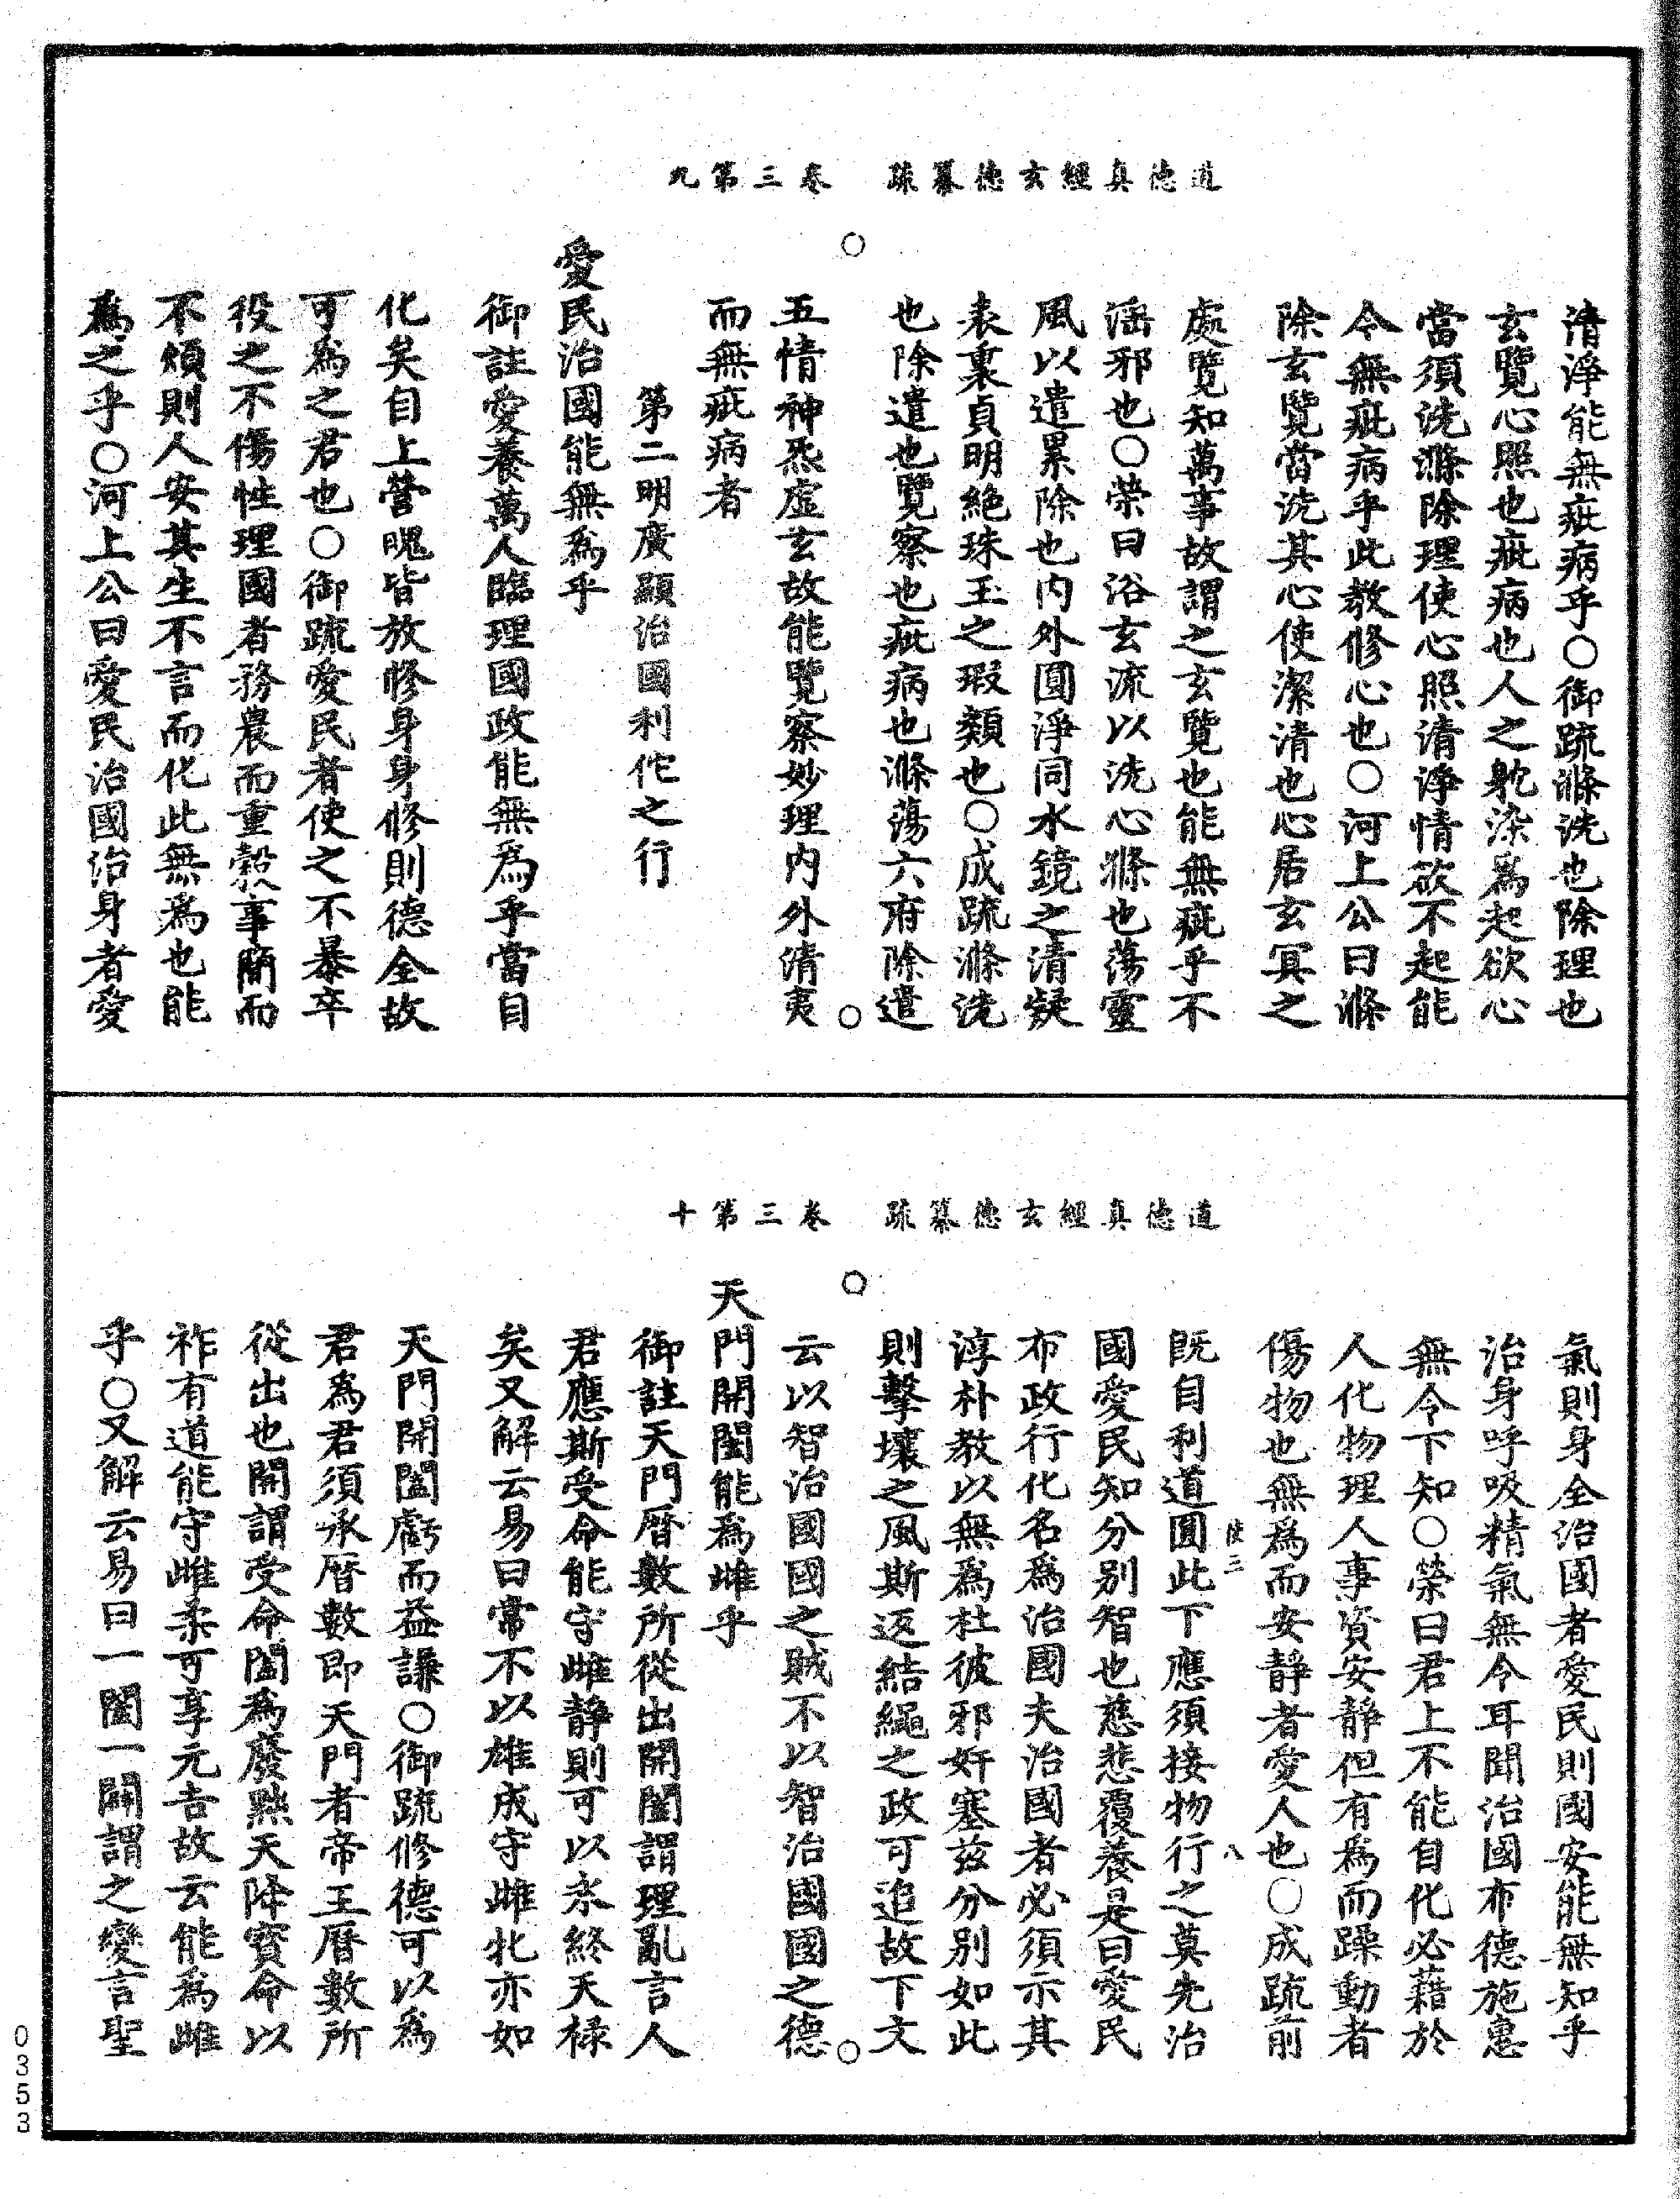 道德真經玄德纂疏　卷三第九
清淨能無疵病乎○御疏滌洗也除理也
玄覽心照也疵病也人之躭染爲起欲心
當須洗滌除理使心照清淨情欲不起能
令無疵病乎此教修心也○河上公曰滌
除玄覽當洗其心使潔清也心居玄冥之
處覽知萬事故謂之玄覽也能無疵乎不
滛邪也○榮曰浴玄流以洗心滌也蕩靈
風以遣累除也内外圓淨同水鏡之清凝
表裏貞明絶珠玉之瑕纇也○成疏滌洗
也除遣也覽察也疵病也滌蕩六府除遣
五情神炁虛玄故能覽察妙理内外清夷
而無疵病者
第二明廣顯治國利佗之行
愛民治國能無爲乎
御註愛養萬人臨理國政能無爲乎當自
化矣自上營魄皆放修身身修則德全故
可爲之君也○御疏愛民者使之不暴卒
役之不傷性理國者務農而重穀事簡而
不煩則人安其生不言而化此無爲也能
爲之乎○河上公曰愛民治國治身者愛
道德真經玄德纂疏　卷三第十
氣則身全治國者愛民則國安能無知乎
治身呼吸精氣無令耳聞治國布德施惠
無令下知○榮曰君上不能自化必藉於
人化物理人事資安靜但有爲而躁動者
傷物也無爲而安靜者愛人也○成疏前
使三　八
既自利道圓此下應須接物行之莫先治
國愛民知分别智也慈悲覆養是曰愛民
布政行化名爲治國夫治國者必須示其
淳朴教以無爲杜彼邪奸塞兹分别如此
則擊壤之風斯返結繩之政可追故下文
云以智治國國之賊不以智治國國之德
天門開闔能爲雌乎
御註天門曆數所從出開闔謂理亂言人
君應斯受命能守雌靜則可以永終天禄
矣又解云易曰常不以雄成守雌牝亦如
天門開闔虧而益謙○御疏修德可以爲
君爲君須承曆數即天門者帝王曆數所
從出也開謂受命闔爲廢黜天降寶命以
祚有道能守雌柔可享元吉故云能爲雌
乎○又解云易曰一闔一闢謂之變言聖
0353